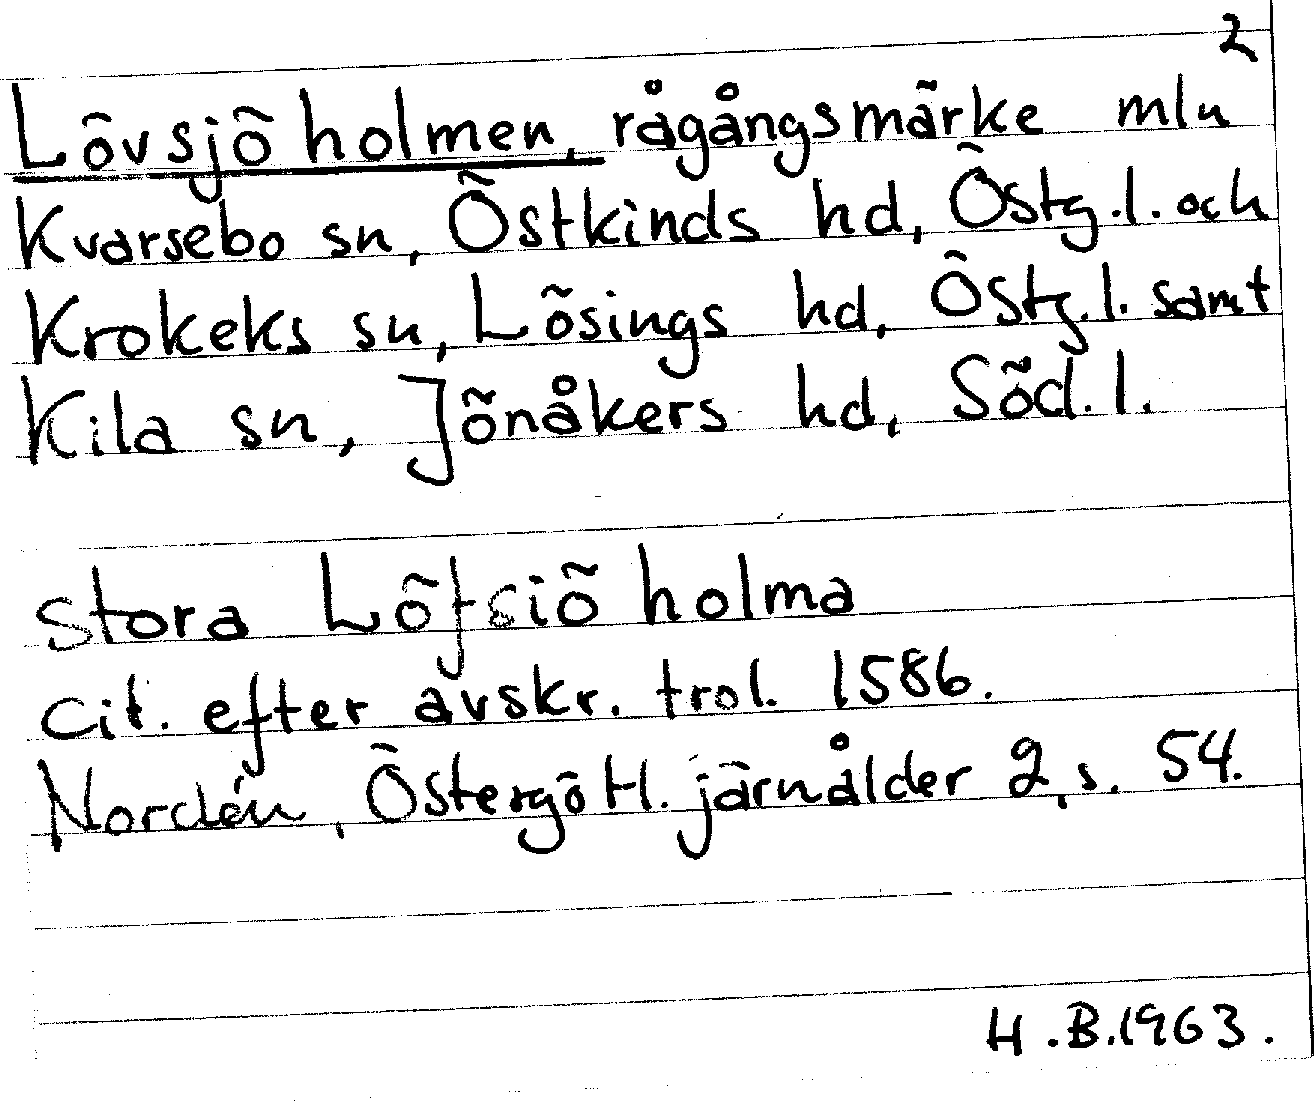 2
Lövsjöholmen, rågångsmärke mln
Kvarsebo sn, Östkinds hd, Östg.l. och
Krokeks sn, Lösings hd, Östg.l. samt
Kila sn, Jönåkers hd, Söd.l.
stora Löfsiö holma
cit. efter avskr. trol. 1586.
Nordén, Östergötl. järnålder 2, s. 54.
H.B.1963.